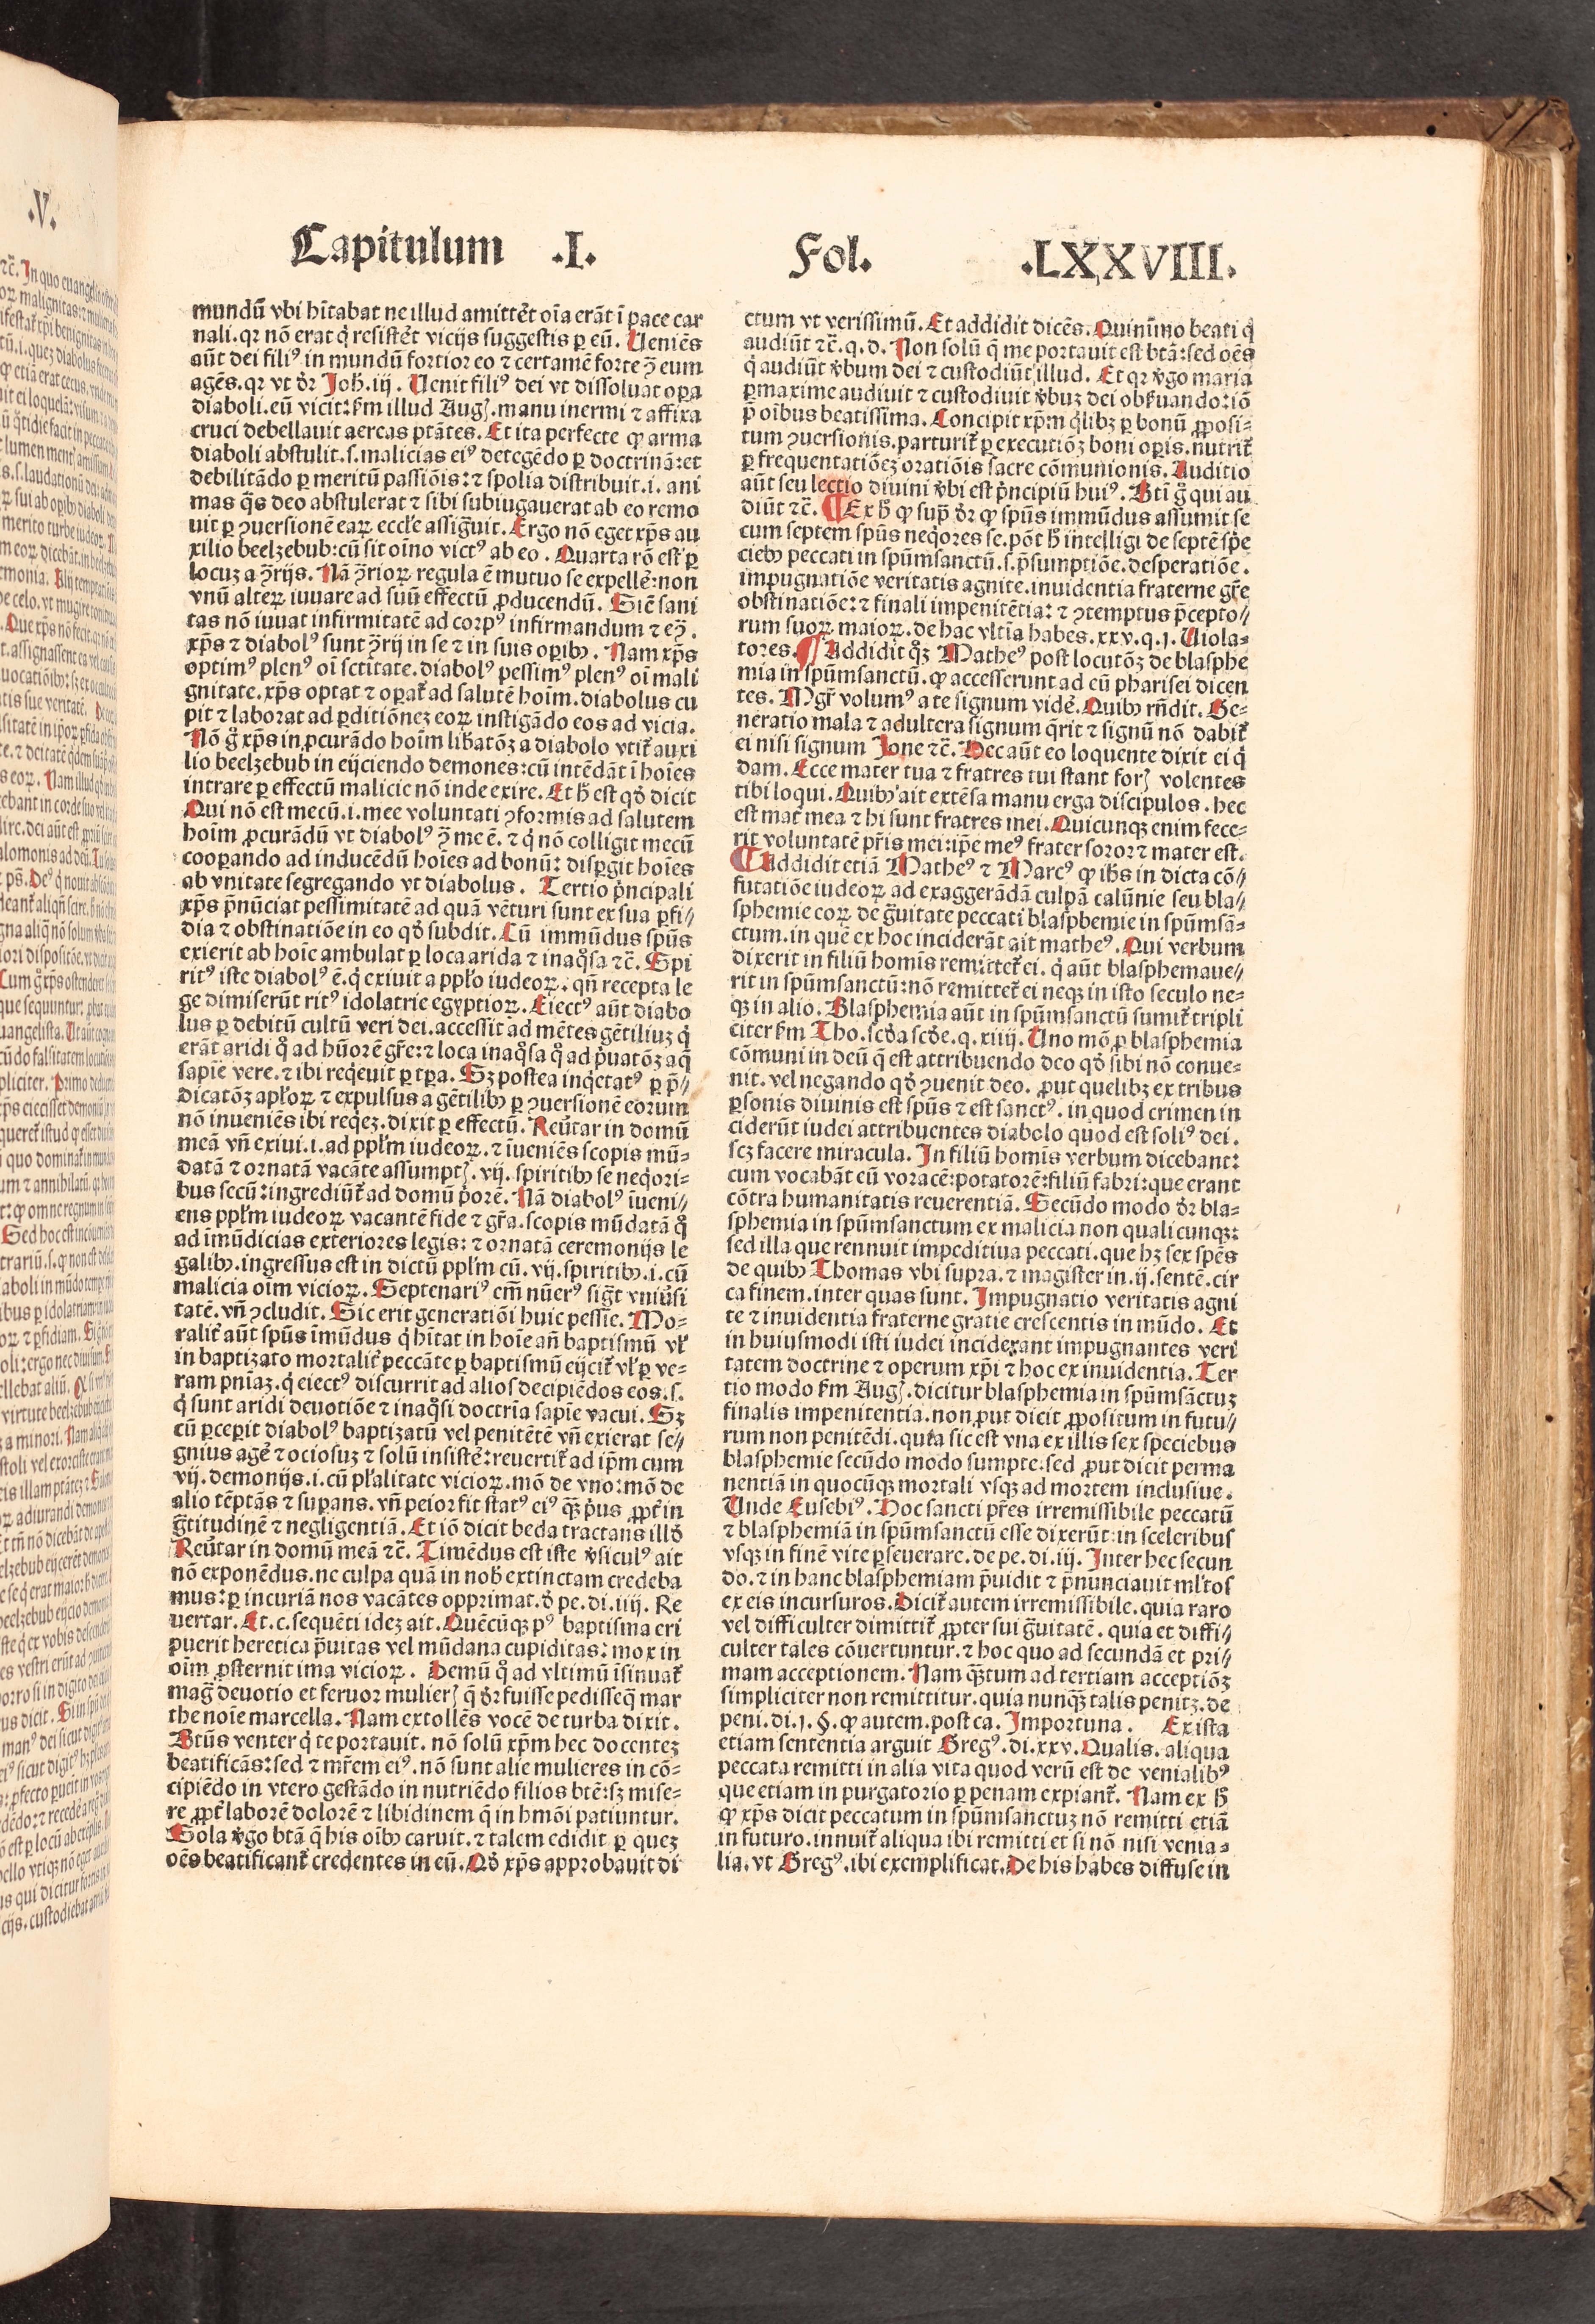 Capitulum .I. Fol. .LXXVIII.
mundū vbi hītabat ne illud amittēt oīa erāt ī pace car
nali. qr nō erat q̇ resistēt vicijs suggestis ꝑ eū. Ueniēs
aūt dei filiꝰ in mundū fortior eo ⁊ certamē forte ꝯ̄ eum
agēs. qr vt dr̄ Joh̄. iij. Uenit filiꝰ dei vt dissoluat oꝑa
diaboli. eū vicit: ẜm illud Augꝭ. manu inermi ⁊ affixa
cruci debellauit aereas ptātes. Et ita perfecte ꝙ arma
diaboli abstulit. s. malicias eiꝰ detegēdo ꝑ doctrinā: et
debilitādo ꝑ meritū passiōis: ⁊ spolia distribuit. i. ani
mas q̄s deo abstulerat ⁊ sibi subiugauerat ab eo remo
uit ꝑ ꝯuersionē eaꝝ eccƚe assig̃uit. Ergo nō eget xp̄s au
xilio beelzebub: cū sit oīno victꝰ ab eo. Quarta rō est ꝑ
locuꝫ a ꝯ̄rijs. Nā ꝯ̄rioꝝ regula ē mutuo se expellē: non
vnū alteꝝ iuuare ad suū effectū ꝓducendū. Sicē sani
tas nō iuuat infirmitatē ad corpꝰ infirmandum ⁊ eꝯ̄.
xp̄s ⁊ diabolꝰ sunt ꝯ̄rij in se ⁊ in suis oꝑibꝫ. Nam xp̄s
optimꝰ plenꝰ oī sctītate. diabolꝰ pessimꝰ plenꝰ oī mali
gnitate. xp̄s optat ⁊ oꝑat᷑ ad salutē hoīm. diabolus cu
pit ⁊ laborat ad ꝑditiōneꝫ eoꝝ instigādo eos ad vicia.
Nō g̊ xp̄s in ꝓcurādo hoīm lib̄atōꝫ a diabolo vtit᷑ auxi
lio beelzebub in eijciendo demones: cū intēdāt ī hoīes
intrare ꝑ effectū malicie nō inde exire. Et h̄ est qd̄ dicit
Qui nō est mecū. i. mee voluntati ꝯformis ad salutem
hoīm ꝓcurādū vt diabolꝰ ꝯ̄ me ē. ⁊ q̇ nō colligit mecū
cooꝑando ad inducēdū hoīes ad bonū: disꝑgit hoīes
ab vnitate segregando vt diabolus. Tertio ṗncipali
xp̄s p̄nūciat pessimitatē ad quā vēturi sunt ex sua ꝑfi//
dia ⁊ obstinatiōe in eo qd̄ subdit. Cū immūdus spūs
exierit ab hoīe ambulat ꝑ loca arida ⁊ inaq̊sa ⁊c̄. Spi
ritꝰ iste diabolꝰ ē. q̇ exiuit a ppƚo iudeoꝝ. qn̄ recepta le
ge dimiserūt ritꝰ idolatrie egyptioꝝ. Eiectꝰ aūt diabo
lus ꝑ debitū cultū veri dei. accessit ad mētes gētiliuꝫ q̇
erāt aridi q̊ ad hūorē gr̄e: ⁊ loca inaq̊sa q̊ ad ṗuatōꝫ aq̄
sapie vere. ⁊ ibi reqeuit ꝑ tꝑa. Sꝫ postea inqetatꝰ ꝑ p̄//
dicatōꝫ apƚoꝝ ⁊ expulsus a gētilibꝫ ꝑ ꝯuersionē eorum
nō inueniēs ibi reqeꝫ. dixit ꝑ effectū. Reūtar in domū
meā vn̄ exiui. i. ad ppƚm iudeoꝝ. ⁊ īueniēs scopis mū=
datā ⁊ ornatā vacāte assumptꝭ. vij. spiritibꝫ se neqori=
bus secū: ingrediūt᷑ ad domū ṗorē. Nā diabolꝰ īueni//
ens ppƚm iudeoꝝ vacantē fide ⁊ gr̄a. scopis mūdatā q̊
ad īmūdicias exteriores legis: ⁊ ornatā ceremonijs le
galibꝫ. ingressus est in dictū ppƚm cū. vij. spiritibꝫ. i. cū
malicia oīm vicioꝝ. Septenariꝰ em̄ nūerꝰ sig̃t vniūsi
tatē. vn̄ ꝯcludit. Sic erit generatiōi huic pessīe. Mo=
ralit᷑ aūt spūs īmūdus q̇ hītat in hoīe an̄ baptismū vƚ
in baptizato mortalit᷑ peccāte ꝑ baptismū eijcit᷑ vƚ ꝑ ve=
ram pniāꝫ. q̇ eiectꝰ discurrit ad alios decipiēdos eos. s.
q̇ sunt aridi deuotiōe ⁊ inaq̊si doctrīa sapīe vacui. Sꝫ
cū ꝑcepit diabolꝰ baptizatū vel penitētē vn̄ exierat se//
gnius agē ⁊ ociosuꝫ ⁊ solū insistē: reuertit᷑ ad ip̄m cum
vij. demonijs. i. cū pƚalitate vicioꝝ. mō de vno: mō de
alio tēptās ⁊ suꝑans. vn̄ peior fit statꝰ eiꝰ q̄ꝫ ṗus ꝓpt᷑ in
g̃titudinē ⁊ negligentiā. Et iō dicit beda tractans illd̄
Reūtar in domū meā ⁊c̄. Timēdus est iste v̄siculꝰ ait
nō exponēdus. ne culpa quā in nob̄ extinctam credeba
mus: ꝑ incuriā nos vacātes opprimat. d̄ pe. di. iiij. Re
uertar. Et. c. sequēti ideꝫ ait. Quēcūqꝫ pꝰ baptisma eri
puerit heretica p̄uitas vel mūdana cupiditas: mox in
oīm ꝓsternit ima vicioꝝ. Demū q̊ ad vltimū īsinuat᷑
mag̃ deuotio et feruor mulierꝭ q̄ dr̄ fuisse pedisseq̄ mar
the noīe marcella. Nam extollēs vocē de turba dixit.
Btūs venter q̇ te portauit. nō solū xp̄m hec docenteꝫ
beatificās: sed ⁊ mr̄em eiꝰ. nō sunt alie mulieres in cō=
cipiēdo in vtero gestādo in nutriēdo filios btē: sꝫ mise=
re ꝓpt᷑ laborē dolorē ⁊ libidinem q̄ in hmōi patiuntur.
Sola v̄go btā q̄ his oībꝫ caruit. ⁊ talem edidit ꝑ queꝫ
oēs beatificant᷑ credentes in eū. Qd̄ xp̄s approbauit di
ctum vt verissimū. Et addidit dicēs. Quinīmo beati q̇
audiūt ⁊c̄. q. d. Non solū q̄ me portauit est btā: sed oēs
q̇ audiūt v̄bum dei ⁊ custodiūt illud. Et qr v̄go maria
ꝑmaxime audiuit ⁊ custodiuit v̄buꝫ dei obẜuando: iō
p̄ oībus beatissima. Concipit xp̄m q̇libꝫ ꝑ bonū ꝓposi=
tum ꝯuersionis. parturit᷑ ꝑ executiōꝫ boni oꝑis. nutrit᷑
ꝑ frequentatiōeꝫ oratiōis sacre cōmunionis. Auditio
aūt seu lectio diuini v̄bi est ṗncipiū huiꝰ. Btī g̊ qui au
diūt ⁊c̄. ¶ Ex h̄ ꝙ sup̄ dr̄ ꝙ spūs immūdus assumit se
cum septem spūs neqores se. pōt h̄ intelligi de septē spē
ciebꝫ peccati in spūmsanctū. s. p̄sumptiōe. desperatiōe.
impugnatiōe veritatis agnite. inuidentia fraterne gr̄e
obstinatiōe: ⁊ finali impenitētia: ⁊ ꝯtemptus p̄cepto//
rum suoꝝ maioꝝ. de hac vltīa habes. xxv. q. j. Uiola=
tores. ¶ Addidit q̊ꝫ Matheꝰ post locutōꝫ de blasphe
mia in spūmsanctū. ꝙ accesserunt ad eū pharisei dicen
tes. Mgr̄ volumꝰ a te signum vidē. Quibꝫ rn̄dit. Ge=
neratio mala ⁊ adultera signum q̄rit ⁊ signū nō dabit᷑
ei nisi signum Jone ⁊c̄. Hec aūt eo loquente dixit ei q̇
dam. Ecce mater tua ⁊ fratres tui stant forꝭ volentes
tibi loqui. Quibꝫ ait extēsa manu erga discipulos. hec
est mat᷑ mea ⁊ hi sunt fratres mei. Quicunqꝫ enim fece=
rit voluntatē pr̄is mei: ip̄e meꝰ frater soror ⁊ mater est.
¶ Addidit etiā Matheꝰ ⁊ Marcꝰ ꝙ ih̄s in dicta cō//
futatiōe iudeoꝝ ad exaggerādā culpā calūnie seu bla=
sphemie eoꝝ de g̃uitate peccati blasphemie in spūmsā=
ctum. in quē ex hoc inciderāt ait matheꝰ. Qui verbum
dixerit in filiū homīs remittet᷑ ei. q̇ aūt blasphemaue//
rit in spūmsanctū: nō remittet᷑ ei neqꝫ in isto seculo ne=
qꝫ in alio. Blasphemia aūt in spūmsanctū sumit᷑ tripli
citer ẜm Tho. scd̄a scd̄e. q. xiiij. Uno mō, ꝓ blasphemia
cōmuni in deū q̄ est attribuendo deo qd̄ sibi nō conue=
nit. vel negando qd̄ ꝯuenit deo. ꝓut quelibꝫ ex tribus
ꝑsonis diuinis est spūs ⁊ est sanctꝰ. in quod crimen in
ciderūt iudei attribuentes diabolo quod est soliꝰ dei.
scꝫ facere miracula. In filiū homīs verbum dicebant:
cum vocabāt eū voracē: potatorē: filiū fabri: que erant
cōtra humanitatis reuerentiā. Secūdo modo dr̄ bla=
sphemia in spūmsanctum ex malicia non quali cunqꝫ:
sed illa que rennuit impeditiua peccati. que hꝫ sex spēs
de quibꝫ Thomas vbi supra. ⁊ magister in. ij. sentē. cir
ca finem. inter quas sunt. Impugnatio veritatis agni
te ⁊ inuidentia fraterne gratie crescentis in mūdo. Et
in huiusmodi isti iudei inciderant impugnantes veri
tatem doctrine ⁊ operum xp̄i ⁊ hoc ex inuidentia. Ter
tio modo ẜm Augꝭ. dicitur blasphemia in spūmsāctuꝫ
finalis impenitentia. non ꝓut dicit ꝓpositum in futu//
rum non penitēdi. quia sic est vna ex illis sex speciebus
blasphemie secūdo modo sumpte: sed ꝓut dicit perma
nentiā in quocūqꝫ mortali vsqꝫ ad mortem inclusiue.
Unde Eusebiꝰ. Hoc sancti pr̄es irremissibile peccatū
⁊ blasphemiā in spūmsanctū esse dixerūt: in sceleribus
vsqꝫ in finē vite ꝑseuerare. de pe. di. iij. Inter hec secun
do. ⁊ in hanc blasphemiam p̄uidit ⁊ p̄nunciauit mƚtos
ex eis incursuros. Dicit᷑ autem irremissibile. quia raro
vel difficulter dimittit᷑ ꝓpter sui g̃uitatē. quia et diffi//
culter tales cōuertuntur. ⁊ hoc quo ad secundā et pri/
mam acceptionem. Nam q̄ꝫtum ad tertiam acceptiōꝫ
simpliciter non remittitur. quia nunq̄ꝫ talis penitꝫ. de
peni. di. j. §. ꝙ autem. post ca. Importuna. Ex ista
etiam sententia arguit Gregꝰ. di. xxv. Qualis. aliqua
peccata remitti in alia vita quod verū est de venialibꝰ
que etiam in purgatorio ꝑ penam expiant᷑. Nam ex h̄
ꝙ xp̄s dicit peccatum in spūmsanctuꝫ nō remitti etiā
in futuro. innuit᷑ aliqua ibi remitti et si nō nisi venia=
lia. vt Gregꝰ. ibi exemplificat. De his habes diffuse in